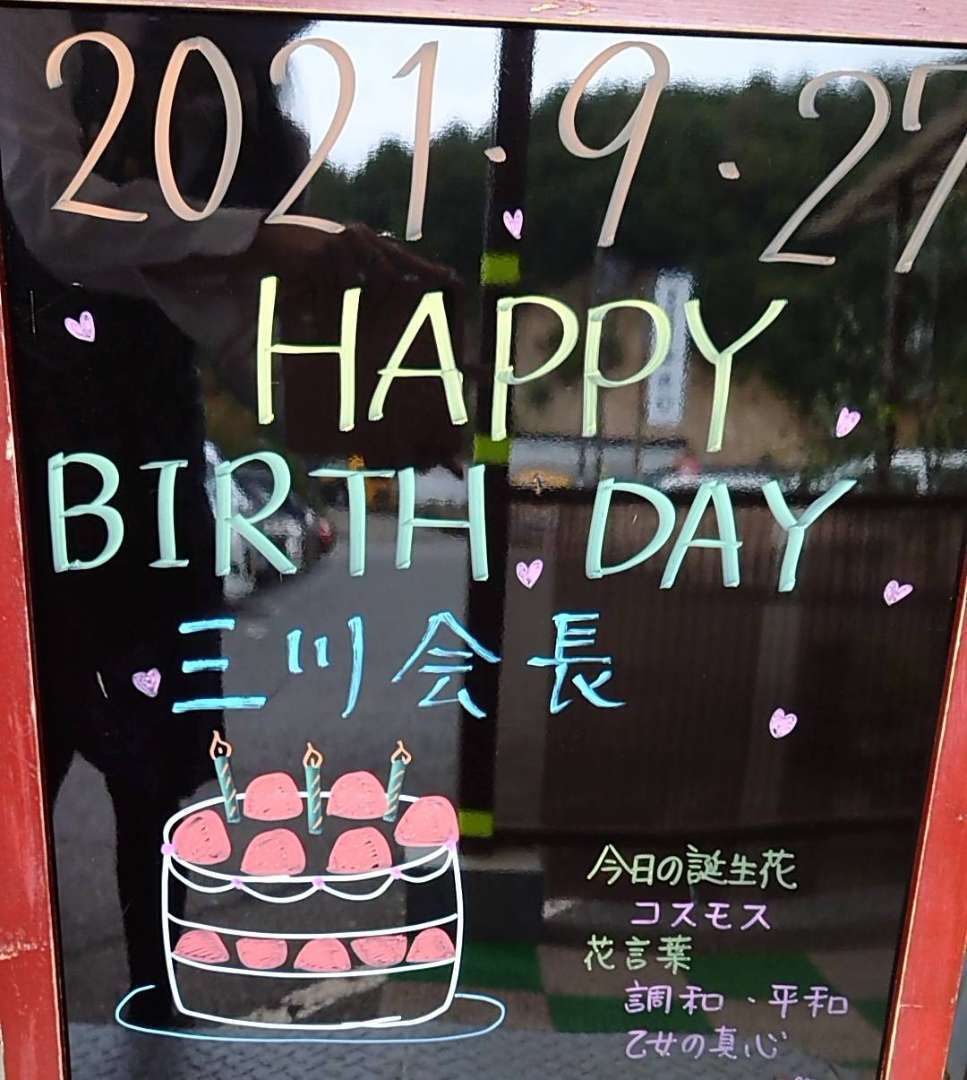 2021.9.27
HAPPY
BIRTH DAY
三川会長
今日の誕生花
コスモス
花言葉
調和、平和
乙女の真心